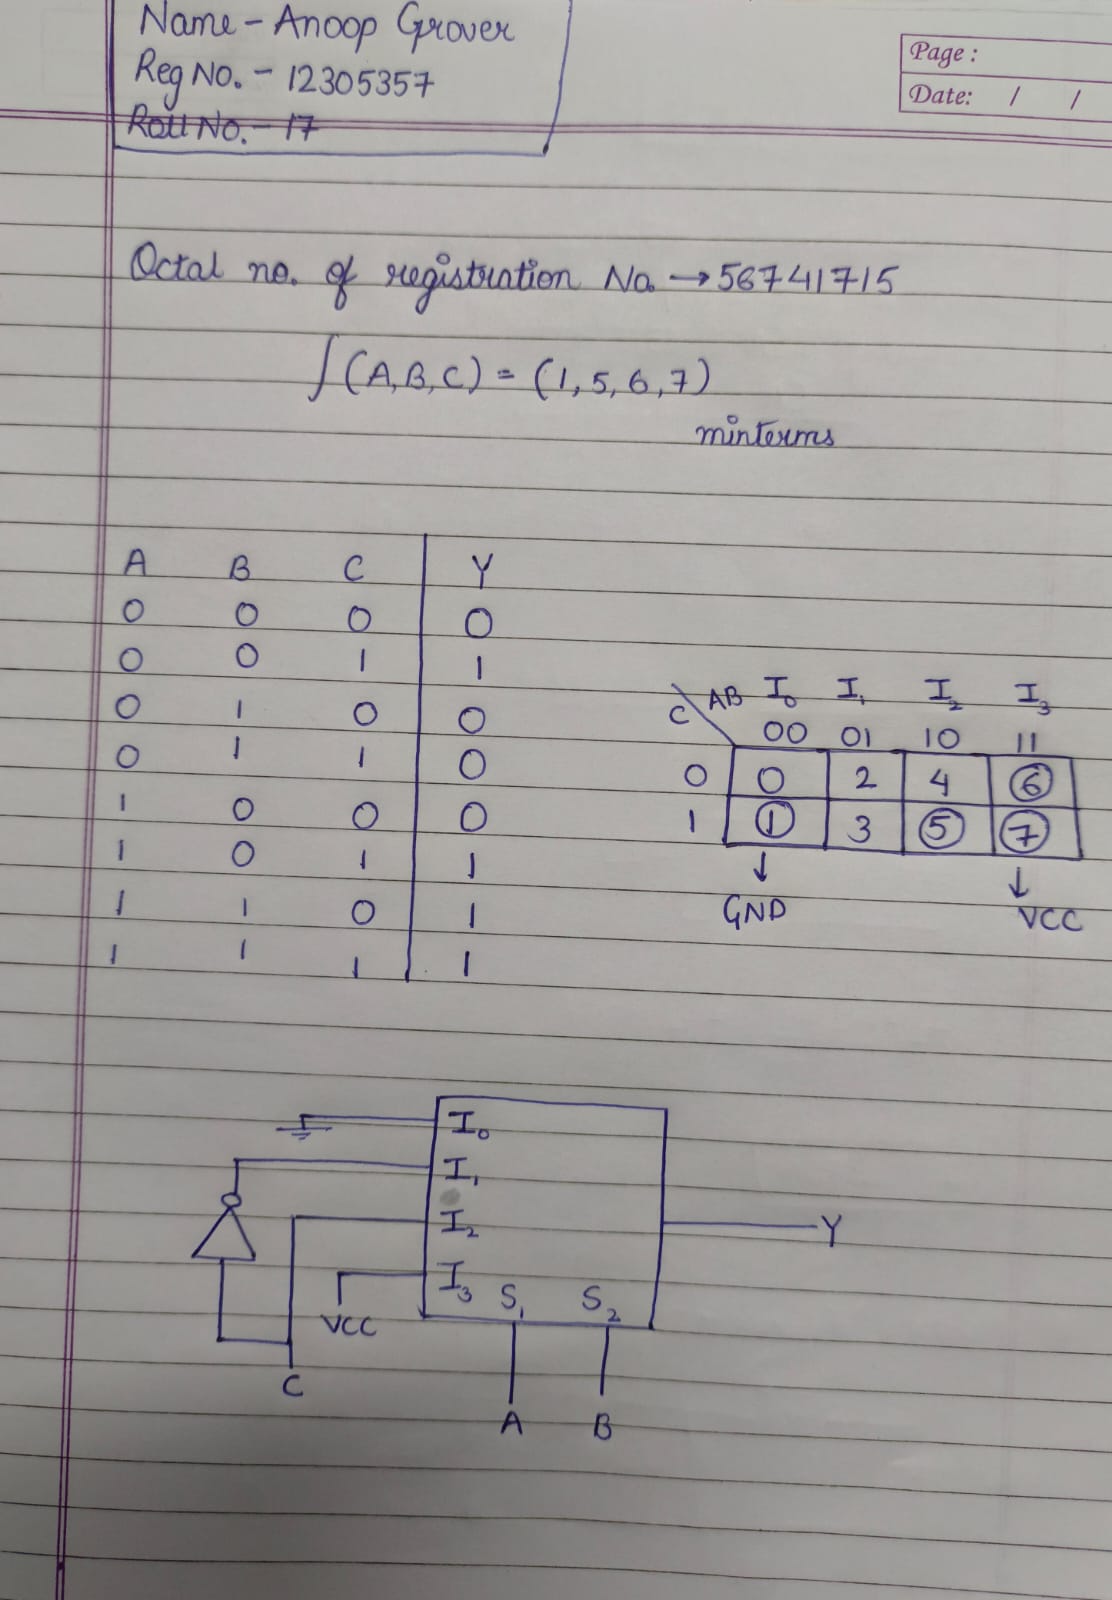 Name - Anoop Grover
Reg No. - 12305357
Roll No. - 17
Page :
Date: / /
Octal no. of registration No. → 56741715
∫(A,B,C) = (1,5,6,7)
minterms
A B C Y
0 0 0 0
0 0 1 1
0 1 0 0
0 1 1 0
1 0 0 0
1 0 1 1
1 1 0 1
1 1 1 1
C AB I₀ I₁ I₂ I₃
00 01 10 11
0 0 2 4 6
1 1 3 5 7
↓ ↓
GND VCC
I₀
I₁
I₂
I₃
S₁ S₂
Y
VCC
C
A B